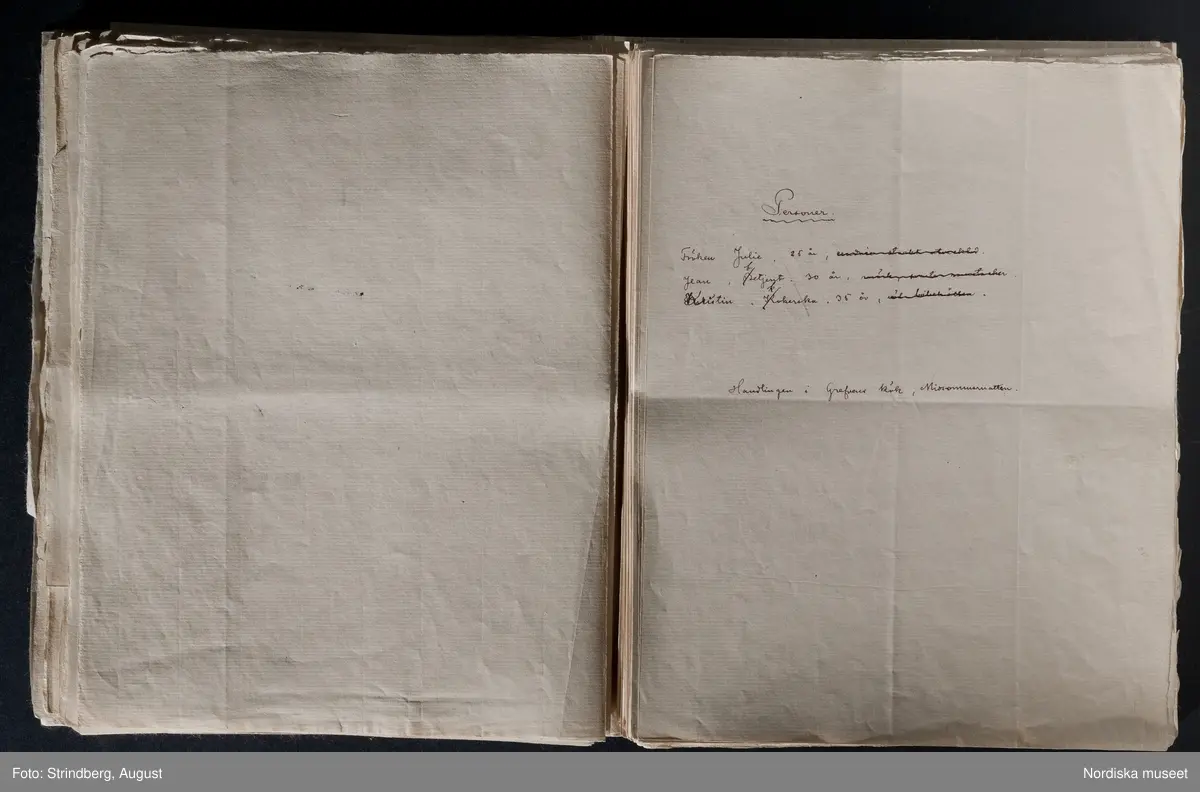 Personer.
Fröken Julie, 25 år,
Jean, betjent. 30 år,
Kristin, kokerska. 35 år,
Handlingen i Grefvens kök, Midsommarnatten.
Foto: Strindberg, August
Nordiska museet